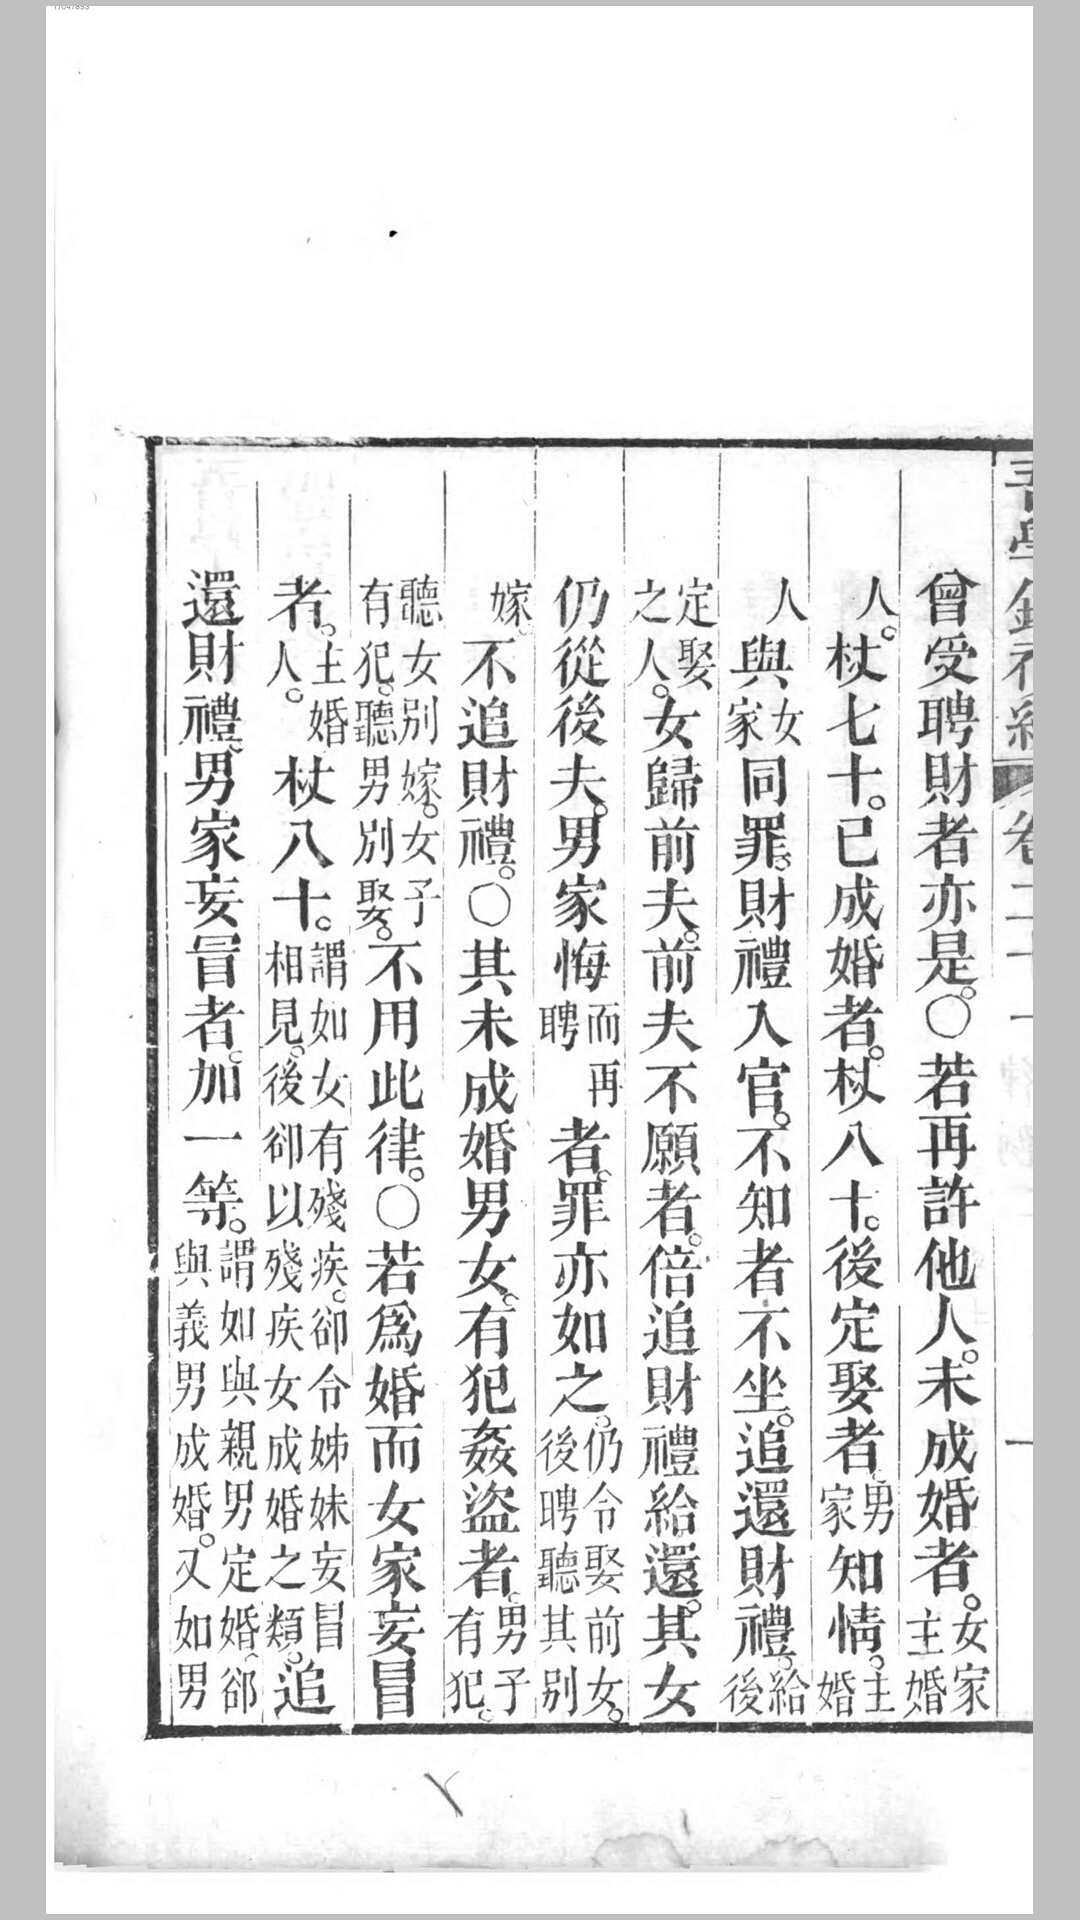 曾受聘財者亦是。〇若再許他人。未成婚者。女家主婚
人。杖七十。已成婚者。杖八十。後定娶者。男家知情。主婚
人與女家同罪。財禮入官。不知者不坐。追還財禮。給後
定娶之人。女歸前夫。前夫不願者。倍追財禮給還。其女
仍從後夫。男家悔而再聘者。罪亦如之。仍令娶前女。後聘聽其別
嫁。不追財禮。〇其未成婚男女。有犯姦盜者。男子有犯。
聽女別嫁。女子有犯。聽男別娶。不用此律。〇若爲婚而女家妄冒
者。主婚人。杖八十。謂如女有殘疾。卻令姊妹妄冒相見。後卻以殘疾女成婚之類。追
還財禮。男家妄冒者。加一等。謂如與親男定婚。卻與義男成婚。又如男